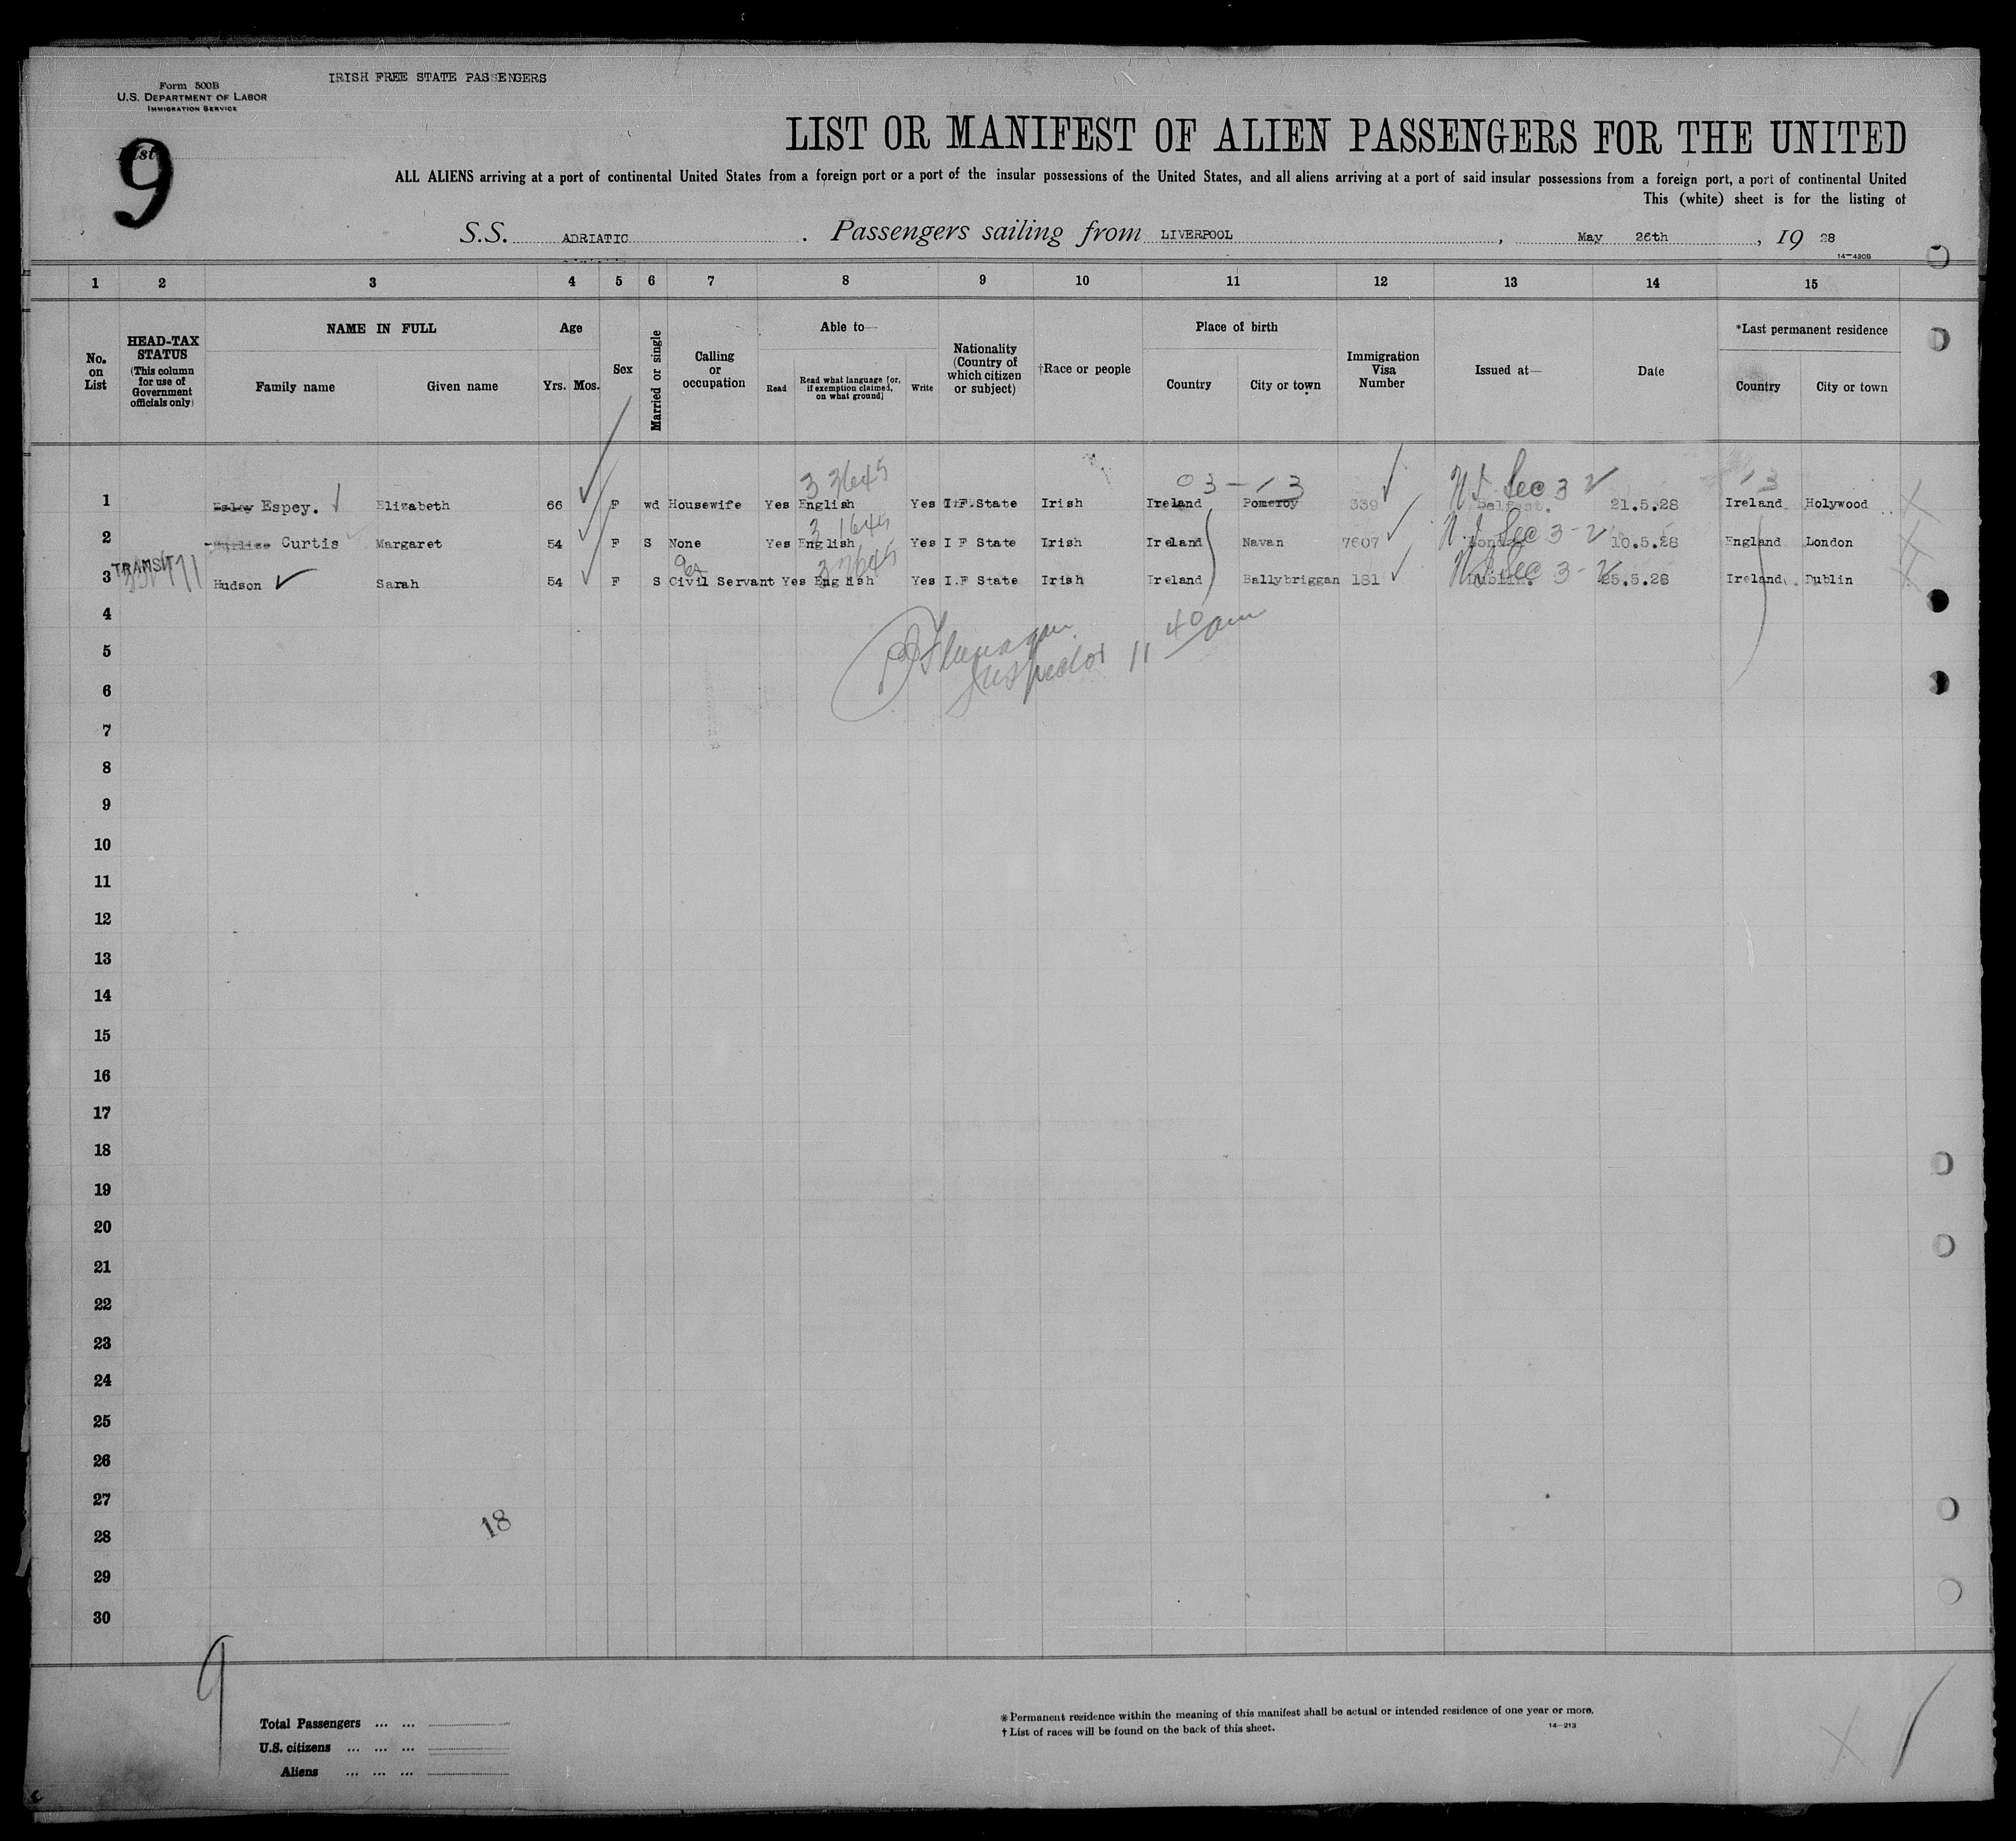 IRISH FREE STATE PASSENGERS
Form 500B
U.S. DEPARTMENT OF LABOR
IMMIGRATION SERVICE
List
9
LIST OR MANIFEST OF ALIEN PASSENGERS FOR THE UNITED
ALL ALIENS arriving at a port of continental United States from a foreign port or a port of the insular possessions of the United States, and all aliens arriving at a port of said insular possessions from a foreign port, a port of continental United
This (white) sheet is for the listing of
S.S. ADRIATIC . Passengers sailing from LIVERPOOL , May 26th , 19 28
14-430B
1 2 3 4 5 6 7 8 9 10 11 12 13 14 15
No. on List
HEAD-TAX STATUS
(This column for use of Government officials only)
NAME IN FULL
Family name Given name
Age
Yrs. Mos.
Sex
Married or single
Calling or occupation
Able to—
Read
Read what language [or, if exemption claimed, on what ground]
Write
Nationality (Country of which citizen or subject)
†Race or people
Place of birth
Country City or town
Immigration Visa Number
Issued at—
Date
*Last permanent residence
Country City or town
33645 03-13 N I Sec 3 2 13
1 Espey. Elizabeth 66 F wd Housewife Yes English Yes I.F.State Irish Ireland Pomeroy 339 Belfast. 21.5.28 Ireland Holywood
3 1645 N I Sec 3-2
2 Curtis Margaret 54 F S None Yes English Yes I F State Irish Ireland Navan 7607 London 10.5.28 England London
TRANSIT 37645 N I Sec 3-2
3 Hudson Sarah 54 F S Civil Servant Yes English Yes I.F State Irish Ireland Ballybriggan 181 Dublin. 25.5.28 Ireland. Dublin
4
Flanagan
Inspector 11 40 am
5
6
7
8
9
10
11
12
13
14
15
16
17
18
19
20
21
22
23
24
25
26
27
18
28
29
30
9
Total Passengers ... ...
U.S. citizens ... ... ...
Aliens ... ... ...
*Permanent residence within the meaning of this manifest shall be actual or intended residence of one year or more.
† List of races will be found on the back of this sheet.
14-213